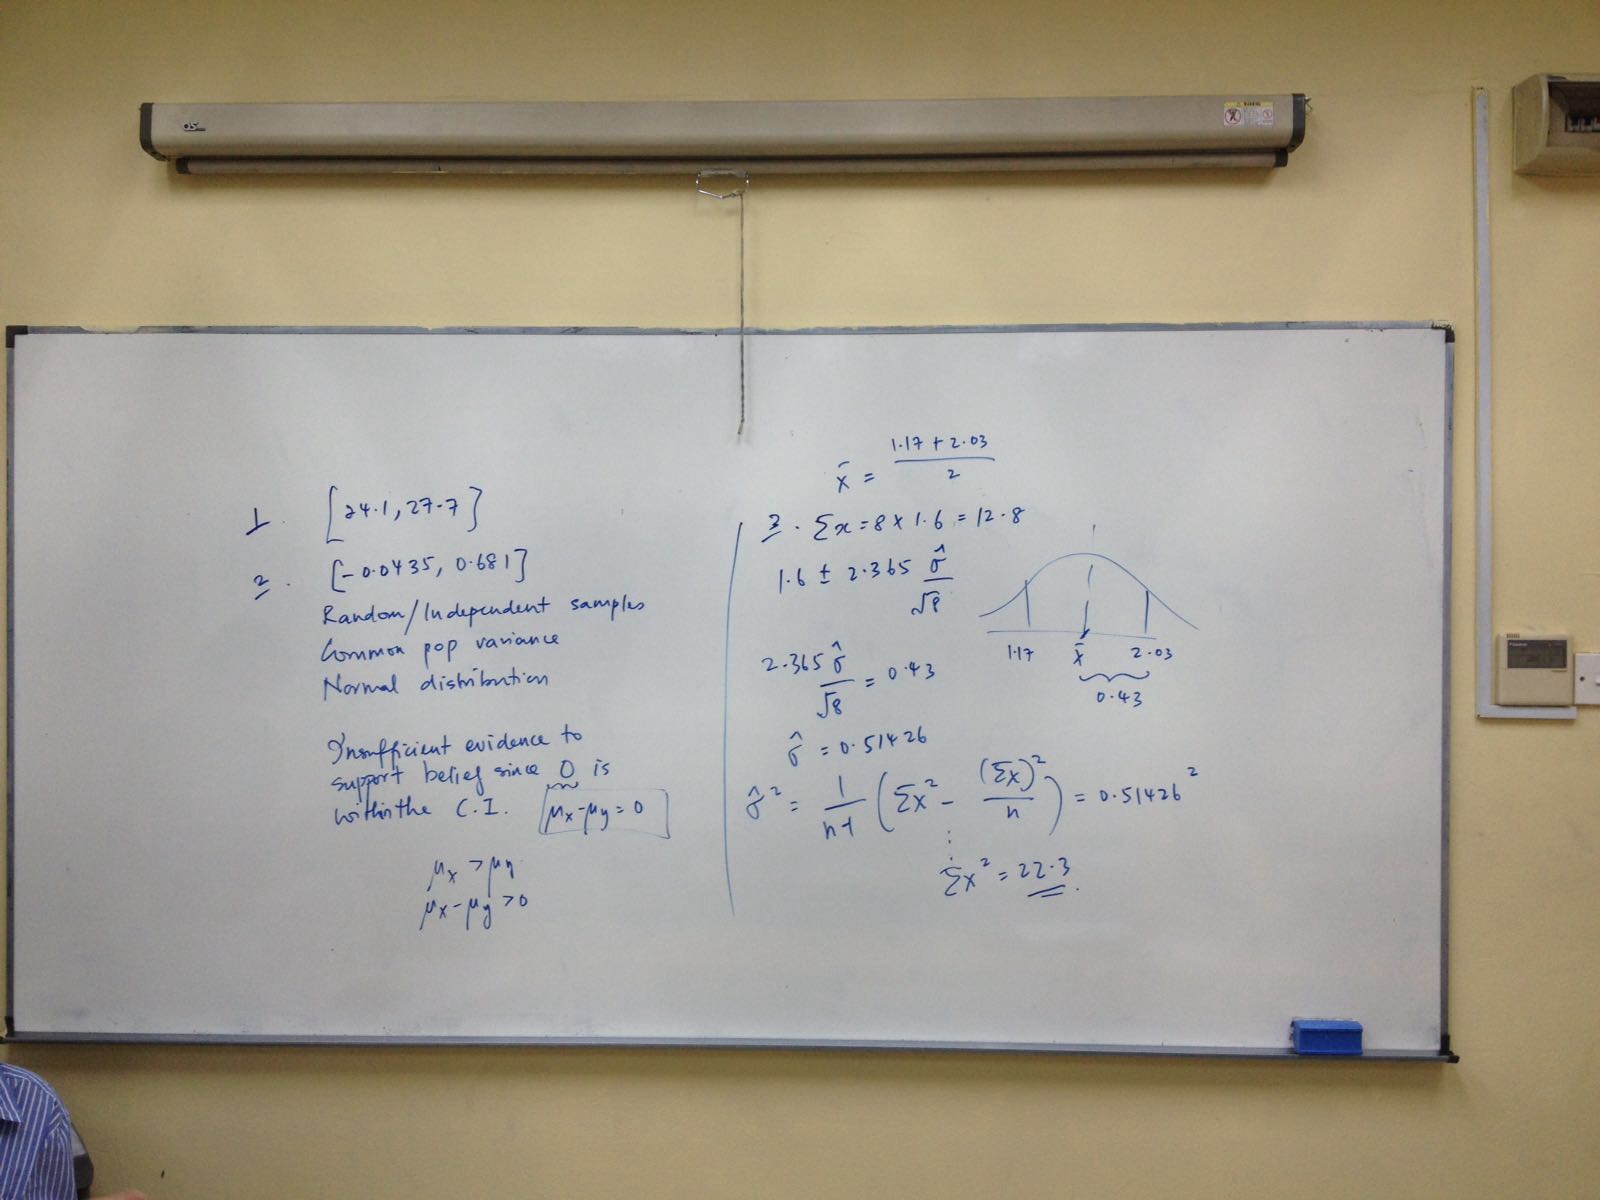 1. [24.1, 27.7]
2. [-0.0435, 0.681]
Random/Independent samples
Common pop variance
Normal distribution
Insufficient evidence to
support belief since 0 is
within the C.I. μx-μy=0
μx >μy
μx-μy >0
x̄ = (1.17 + 2.03)/2
3. Σx=8×1.6=12.8
1.6 ± 2.365 σ̂/√8
2.365 σ̂/√8 = 0.43
σ̂ = 0.51426
σ̂² = 1/(n-1) (Σx² - (Σx)²/n) = 0.51426²
⋮
Σx² = 22.3
1.17 x̄ 2.03
0.43